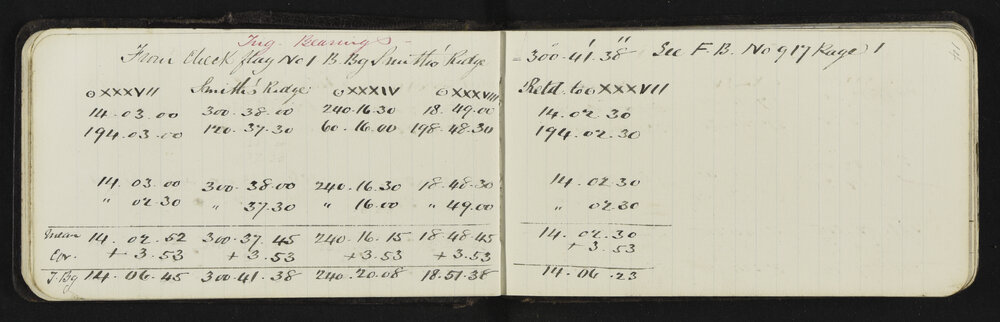 Trig. Bearings
From Check flag No 1 B. Bg Smith's Ridge = 300°.41'.38" See F. B. No 917 Page 1
⊙XXXVII Smith's Ridge ⊙XXXIV ⊙XXXVIII Retd. to ⊙XXXVII
14.03.00 300.38.00 240.16.30 18.49.00 14.02.30
194.03.00 120.37.30 60.16.00 198.48.30 194.02.30
14.03.00 300.38.00 240.16.30 18.48.30 14.02.30
" 02.30 " 37.30 " 16.00 " 49.00 " 02.30
14.02.52 300.37.45 240.16.15 18.48.45 14.02.30
Cor. +3.53 +3.53 +3.53 +3.53 +3.53
T. Bg 14.06.45 300.41.38 240.20.08 18.51.38 14.06.23